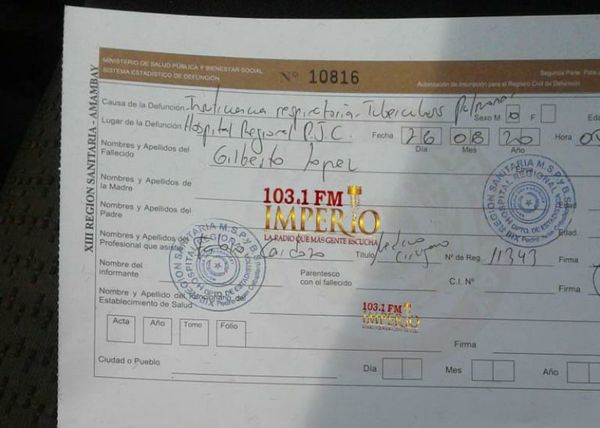 MINISTERIO DE SALUD PÚBLICA Y BIENESTAR SOCIAL
SISTEMA ESTADISTICO DE DEFUNCIÓN
Nº 10816
Segunda Parte: Para
Autorización de Inscripción para el Registro Civil de Defunción
XIII REGION SANITARIA - AMAMBAY
Causa de la Defunción: respiratoria. Tuberculosis Pulmonar
Sexo M F Edad
Lugar de la Defunción: Hospital Regional P.J.C. Fecha 26 08 20 Hora
Día Mes Año
Nombres y Apellidos del Fallecido Gilberto Lopez
Nombres y Apellidos de la Madre
103.1 FM
IMPERIO
LA RADIO QUE MÁS GENTE ESCUCHA
Nombres y Apellidos del Padre
Edad
Nombres y Apellidos del Profesional que Cardozo Título Cirujano Nº de Reg. 11343 Firma
Nombre del informante
Parentesco con el fallecido
C.I. Nº
Firma
Nombre y Apellido del Establecimiento de Salud
103.1 FM
IMPERIO
Acta Año Tomo Folio
Firma
Ciudad o Pueblo
Día Mes Año
REGION SANITARIA M.S.P.Y B.S.
HOSPITAL REGIONAL
DPTO. DE ESTADISTICA
XIII
Pedro Juan Caballero
REGION SANITARIA M.S.P.Y B.S.
HOSPITAL REGIONAL
DPTO. DE ESTADISTICA
XIII
Pedro Juan Caballero